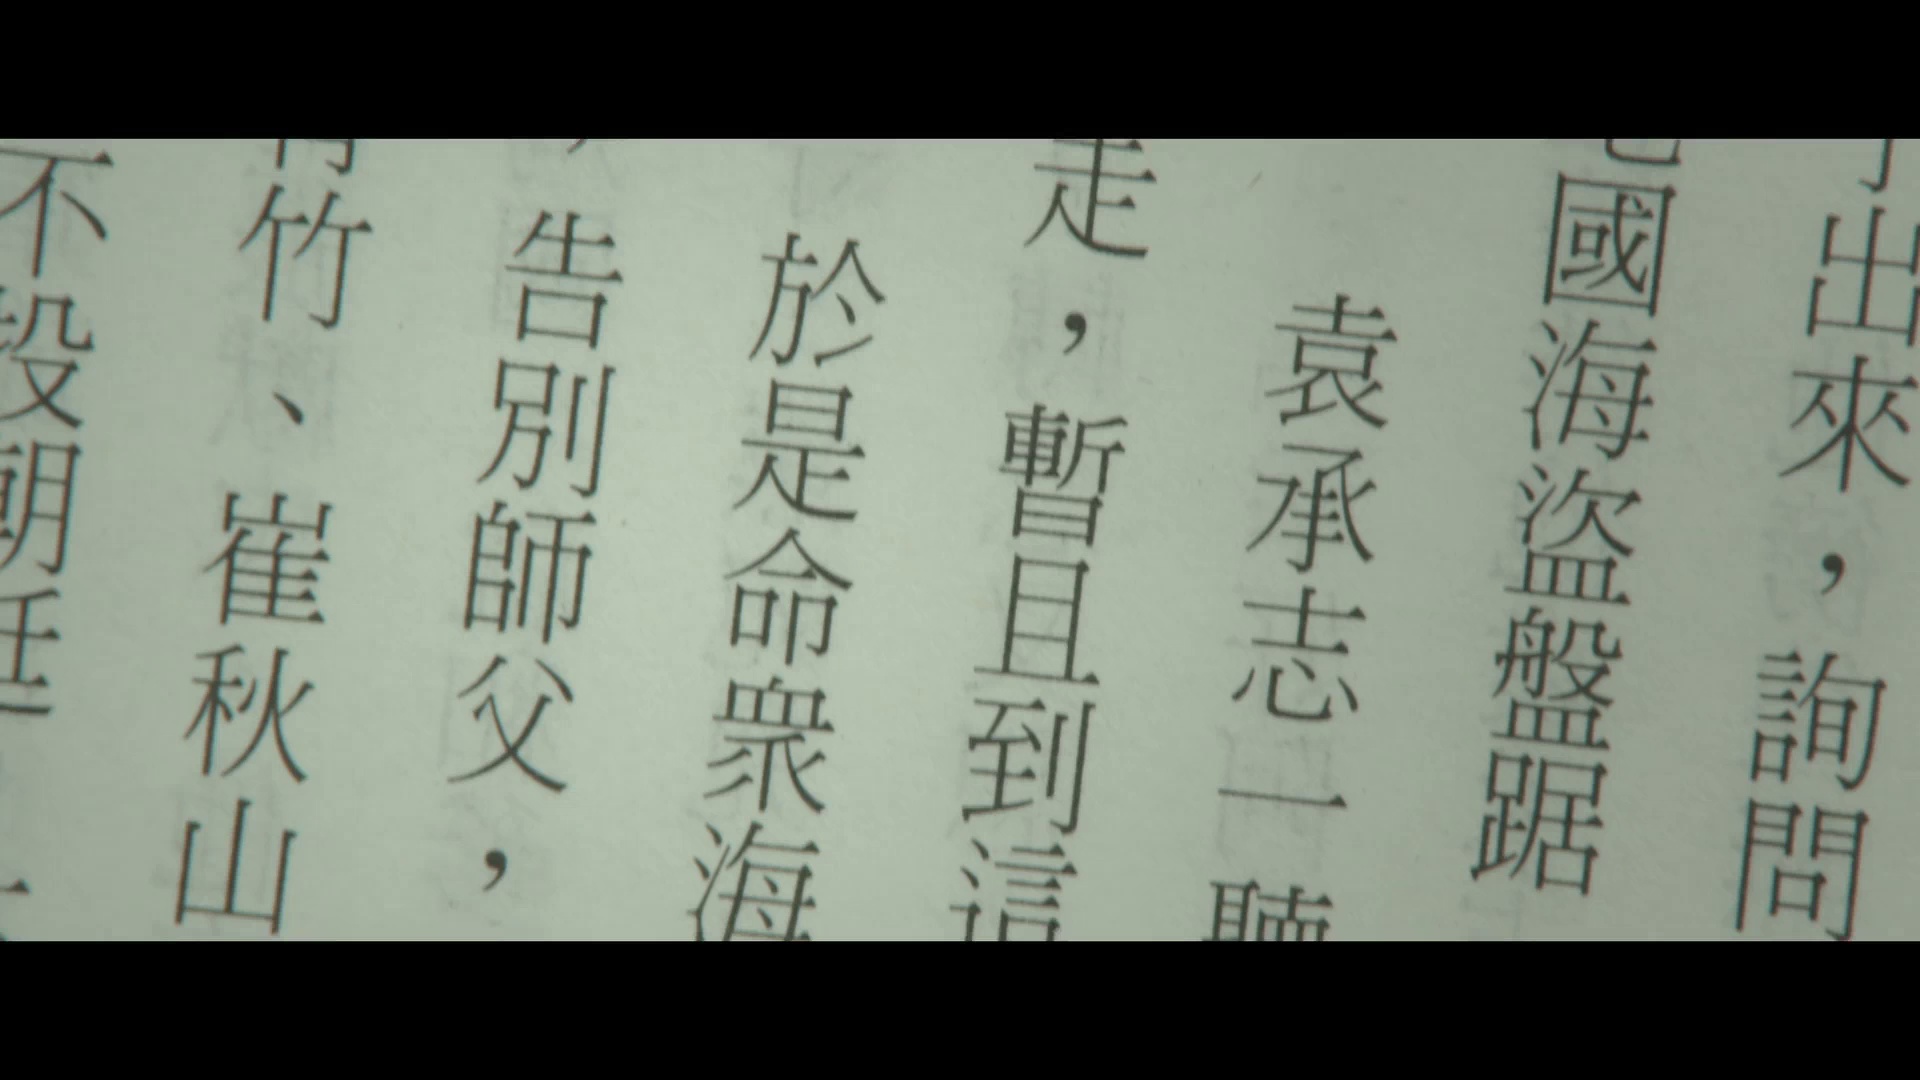 出來，詢問
國海盜盤踞
袁承志一聽
走，暫且到這
於是命衆海
告別師父，
竹、崔秋山
不投朝廷